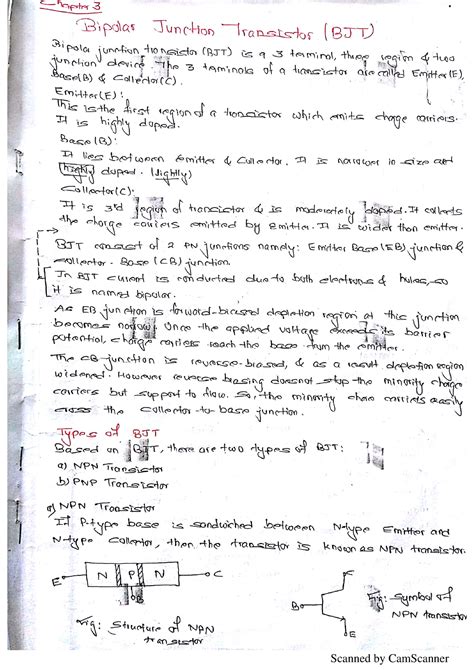 Chapter 3
Bipolar Junction Transistor (BJT)
Bipola junction transistor (BJT) is a 3 terminal, three region & two
junction device. The 3 terminals of a transistor are called Emitter(E),
Base(B) & Collector(C).
Emitter(E):
This is the first region of a transistor which emits charge carriers.
It is highly doped.
Base(B):
It lies between emitter & collector. It is narrower in size and
highly doped. (lightly)
Collector(C):
It is 3rd region of transistor & is moderately doped. It collects
the charge carriers emitted by Emitter. It is wider than emitter.
BJT consist of 2 PN junctions namely: Emitter Base (EB) junction &
collector-Base (CB) junction.
In BJT current is conducted due to both electrons & holes, so
it is named bipolar.
As EB junction is forward-biased depletion region at this junction
becomes narrow. Once the applied voltage exceeds its barrier
potential, charge carriers reach the base from the emitter.
The CB-junction is reverse-biased, & as a result depletion region
widened. However reverse biasing doesnot stop the minority charge
carriers but support to flow. So, the minority carriers easily
cross the collector-to base junction.
Types of BJT
Based on BJT, there are two types of BJT:
a) NPN Transistor
b) PNP Transistor
a) NPN Transistor
If P-type base is sandwiched between N-type Emitter and
N-type Collector, then the transistor is known as NPN transistor.
E N P N C
B
fig: Structure of NPN
transistor
C
B
E
fig: Symbol of
NPN transistor
Scanned by CamScanner